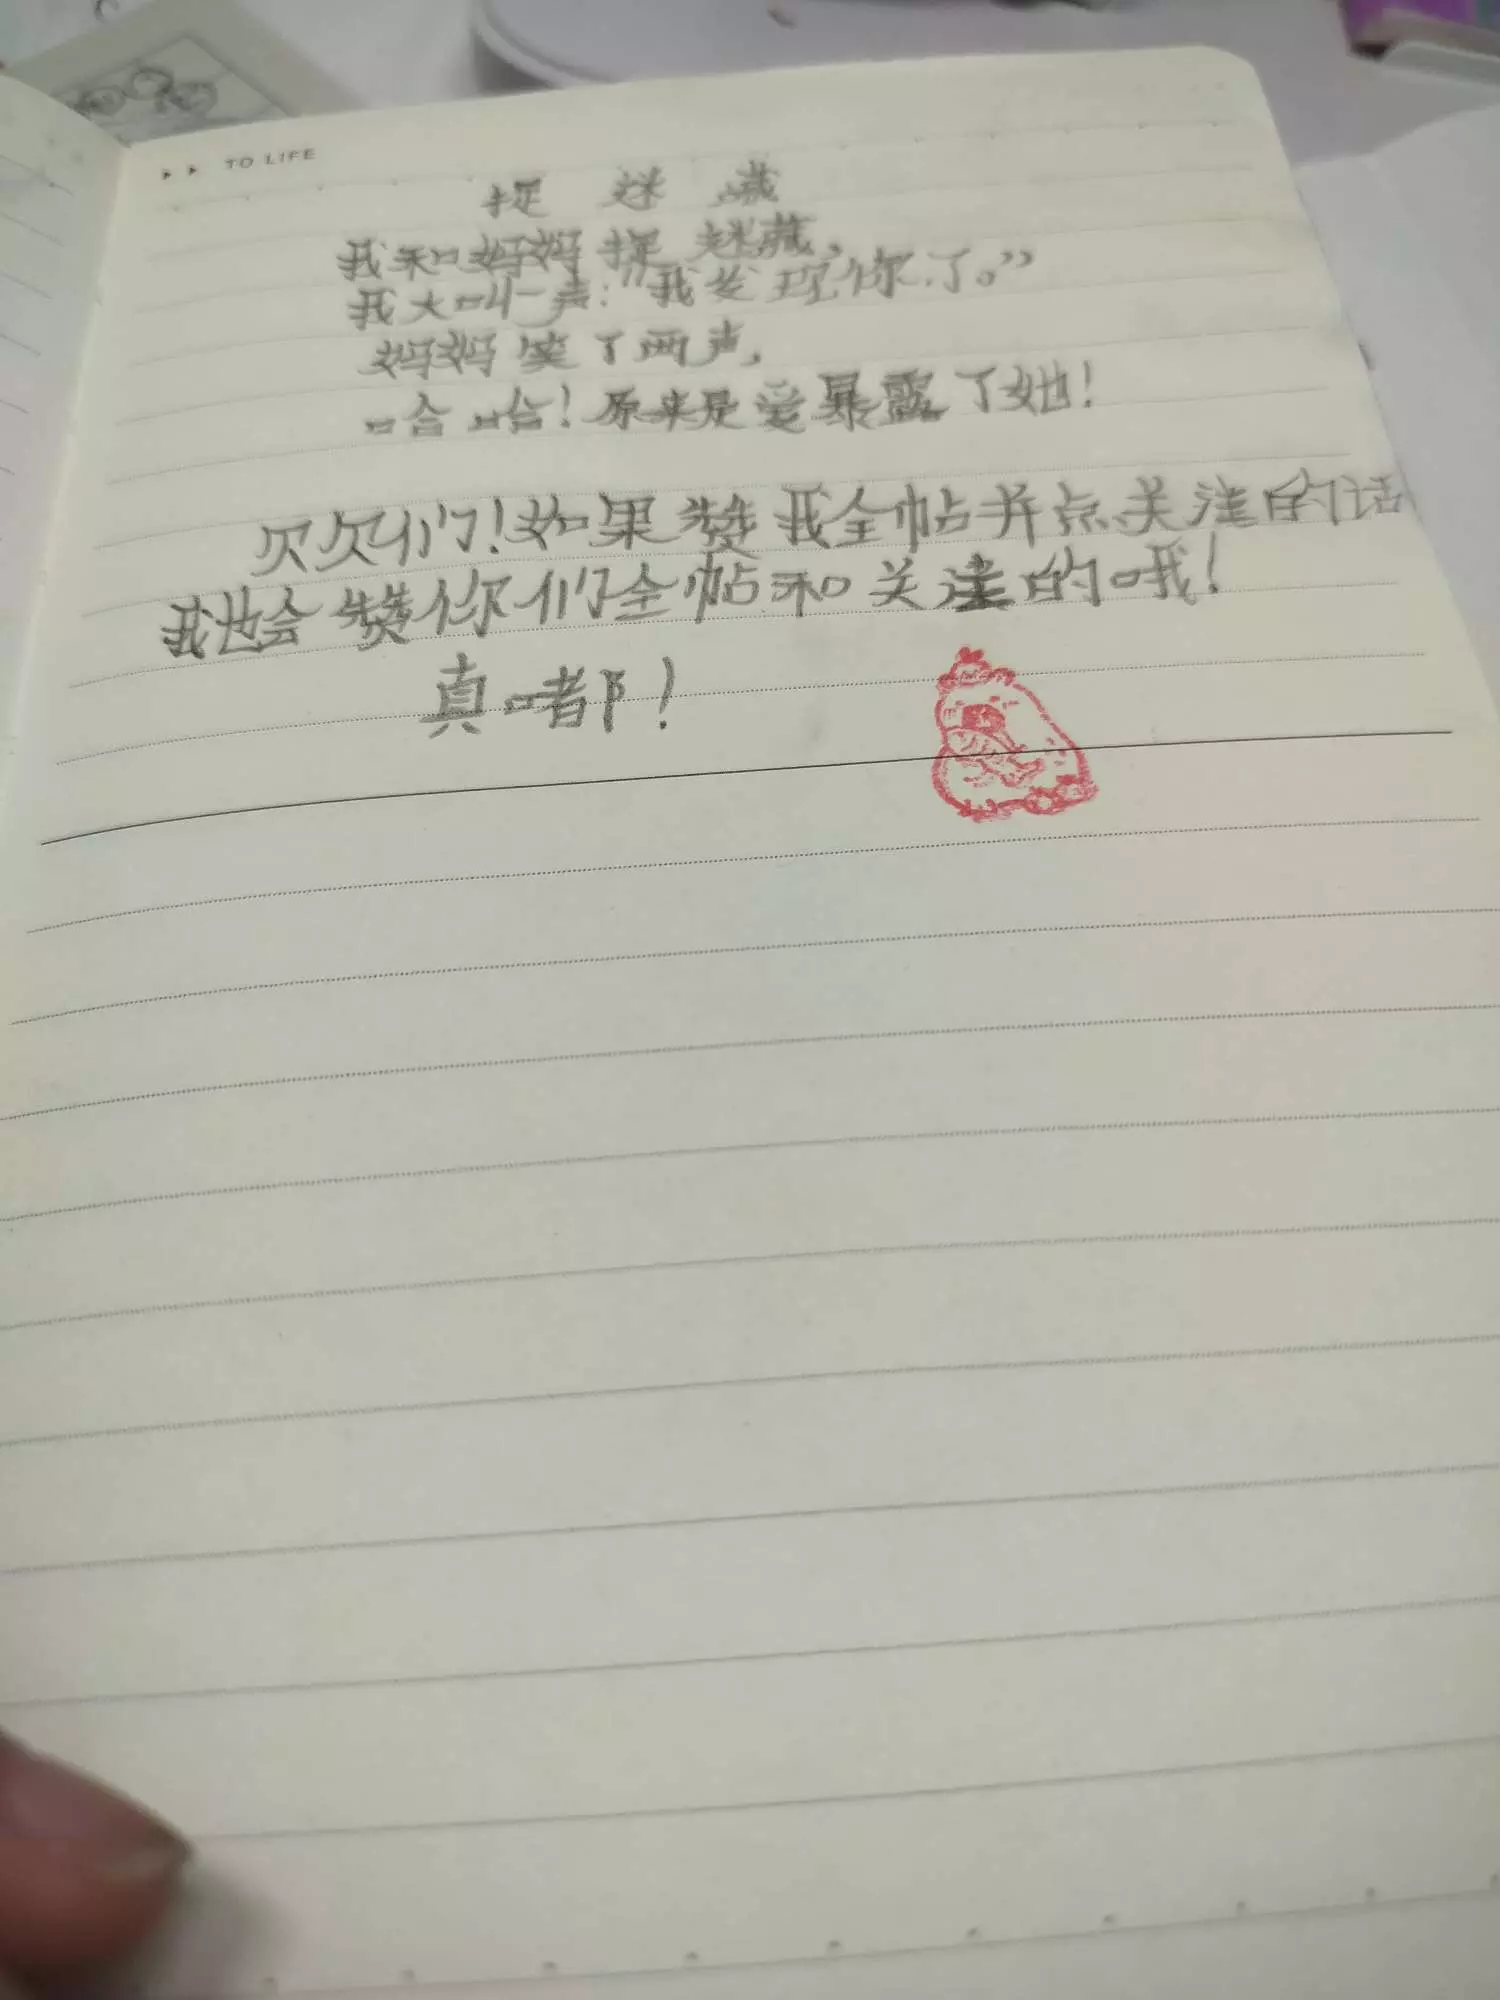 ▸ ▸ TO LIFE
捉 迷 藏
我和妈妈捉迷藏,
我大叫一声:“我发现你了。”
妈妈笑了两声,
哈哈!原来是爱暴露了她!
欠欠们!如果赞我全帖并点关注的话
我也会赞你们全帖和关注的哦!
真嘟!